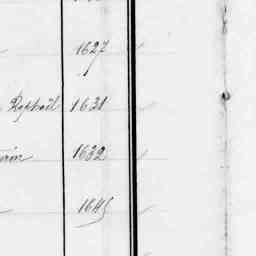 1627
Raphaël 1631
1632
1645